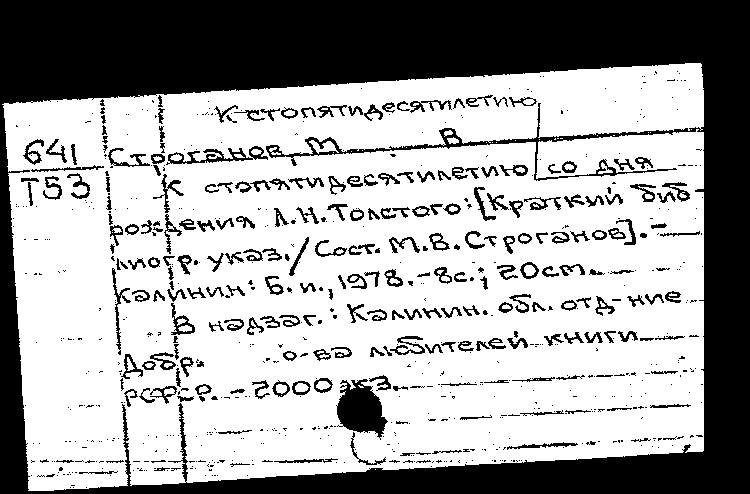 К стопятидесятилетию
641 Строганов, М. В
Т53 К стопятидесятилетию со дня
рождения Л.Н.Толстого: [Краткий биб-
лиогр. указ. / Сост. М.В.Строганов]. -
Калинин: Б. и., 1978. - 8с.; 20см.
В надзаг.: Калинин. обл. отд-ние
Добр. о-ва любителей книги
РСФСР. - 2000 экз.